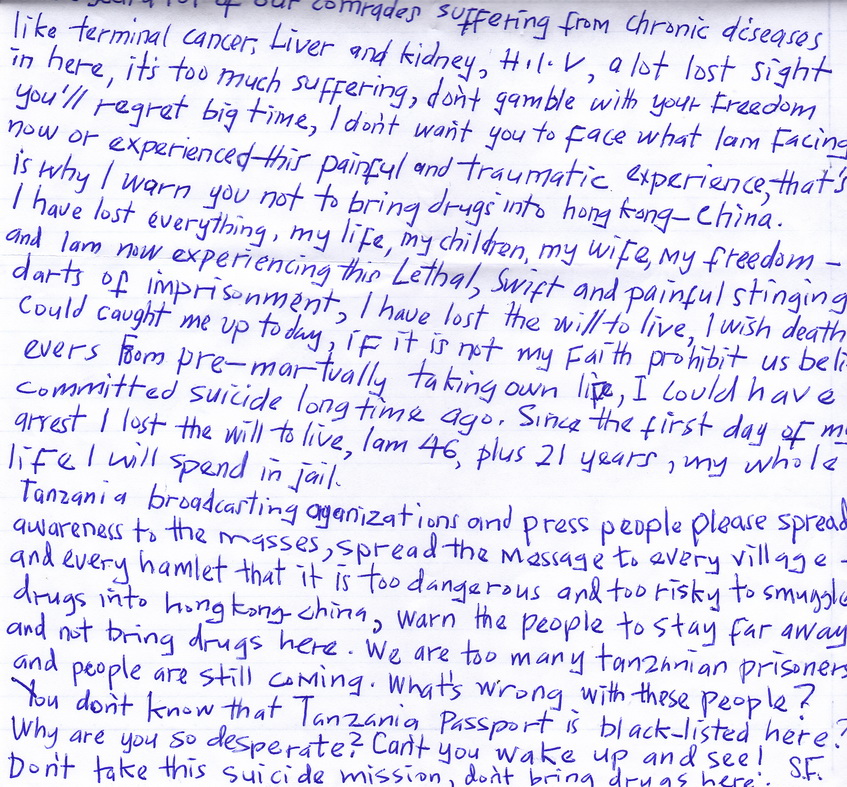 of our comrades suffering from chronic diseases
like terminal cancer, Liver and kidney, H.I.V, a lot lost sight
in here, it's too much suffering, don't gamble with your Freedom
you'll regret big time, I don't want you to Face what Iam Facing
now or experienced this painful and traumatic experience, that's
is why I warn you not to bring drugs into hong kong-China.
I have lost everything, my life, my children, my wife, my freedom -
and Iam now experiencing this Lethal, Swift and painful stinging
darts of imprisonment, I have lost the will to live, I wish death
Could caught me up today, iF it is not my Faith prohibit us beli
evers From pre-mar-tually taking own life, I could have
committed suicide long time ago. Since the first day of my
arrest I lost the will to live, Iam 46, plus 21 years, my whole
life I will spend in jail.
Tanzania broadcasting oganizations and press people please spread
awareness to the masses, spread the message to every village -
and every hamlet that it is too dangerous and too risky to smuggle
drugs into hong kong-china, warn the people to stay far away
and not bring drugs here. We are too many tanzanian prisoners
and people are still coming. What's wrong with these people?
You don't know that Tanzania Passport is black-listed here?
Why are you so desperate? Can't you wake up and see!
Don't take this suicide mission, don't bring drugs here! S.F.